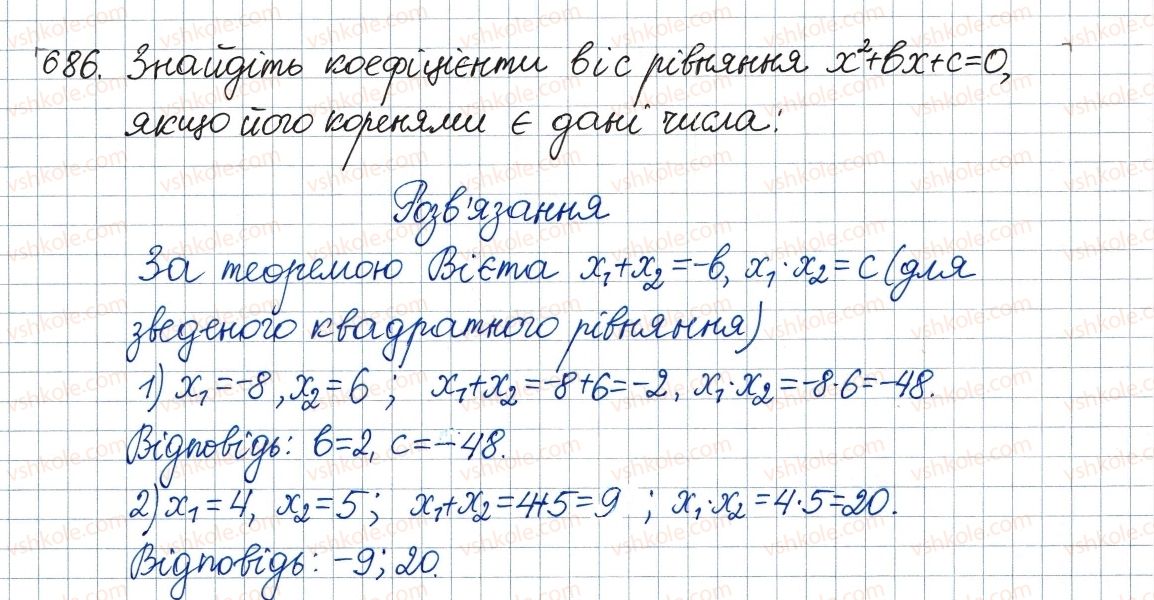 686. Знайдіть коефіцієнти в і с рівняння x²+вx+c=0,
якщо його коренями є дані числа:
Розв'язання
За теоремою Вієта x₁+x₂=-в, x₁·x₂=c (для
зведеного квадратного рівняння)
1) x₁=-8, x₂=6 ; x₁+x₂=-8+6=-2, x₁·x₂=-8·6=-48.
Відповідь: в=2, c=-48.
2) x₁=4, x₂=5; x₁+x₂=4+5=9 ; x₁·x₂=4·5=20.
Відповідь: -9; 20.